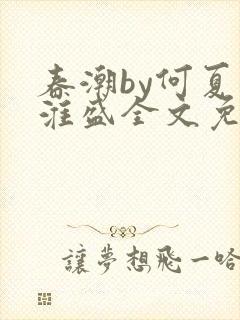 春潮by何夏
淮盛全文免
讓夢想飛一哈